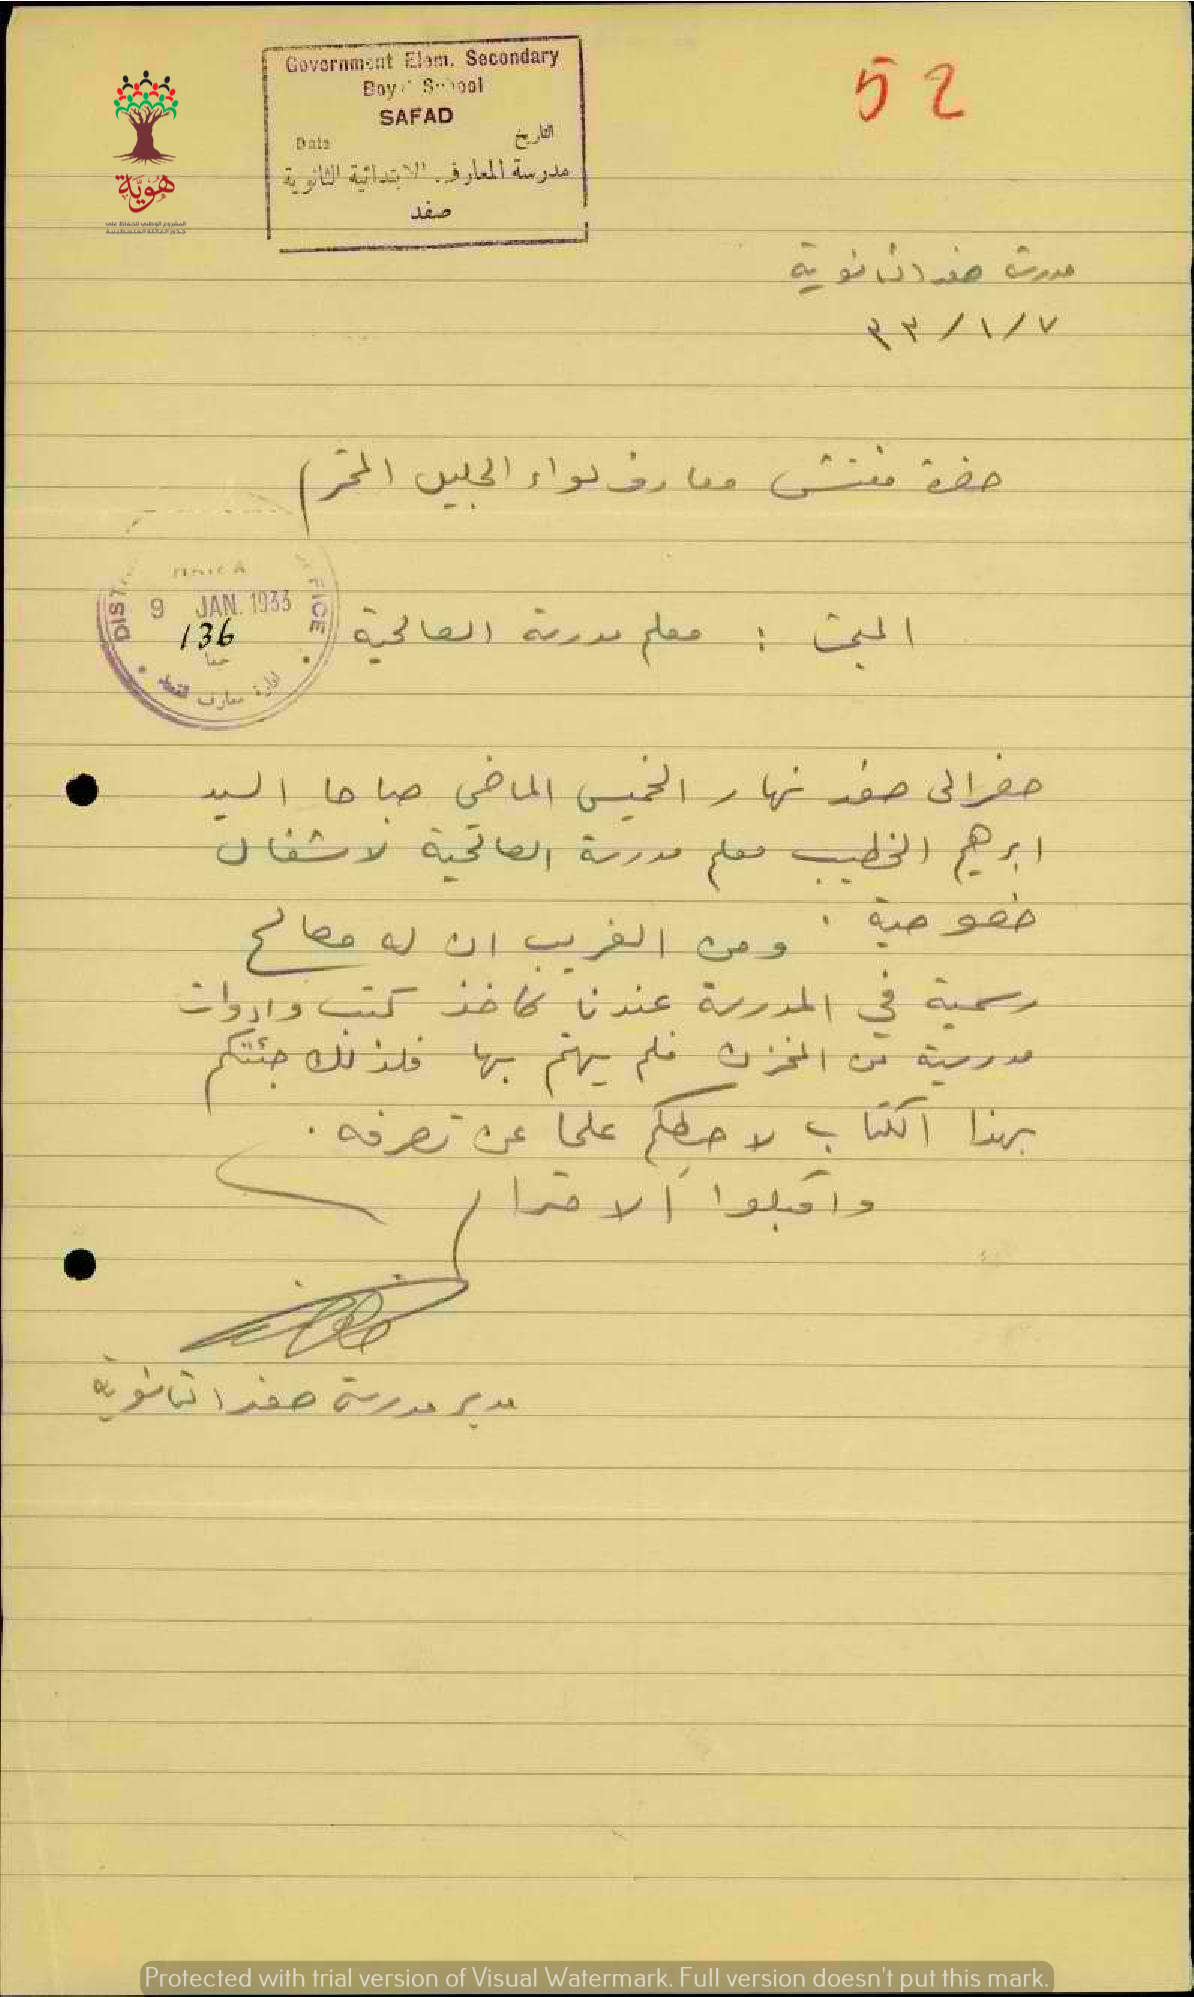 Government Elem. Secondary
Boys' School
SAFAD
Date التاريخ
مدرسة المعارف الابتدائية الثانوية
صفد
52
هوية
المشروع الوطني للحفاظ على
جذور العائلة الفلسطينية
مدرسة صفد الثانوية
٧/١/٣٣
حضرة مفتش معارف لواء الجليل المحترم
9 JAN. 1933
136
ادارة معارف
المبحث : معلم مدرسة الصالحية
حضر الى صفد نهار الخميس الماضي صباحا السيد
ابرهيم الخطيب معلم مدرسة الصالحية لاشغال
خصوصية . ومن الغريب ان له مصالح
رسمية في المدرسة عندنا كاخذ كتب وادوات
مدرسية من المخزن فلم يهتم بها فلذلك جئتكم
بهذا الكتاب لاحيطكم علما عن تصرفه .
واقبلوا الاحترام
مدير مدرسة صفد الثانوية
Protected with trial version of Visual Watermark. Full version doesn't put this mark.